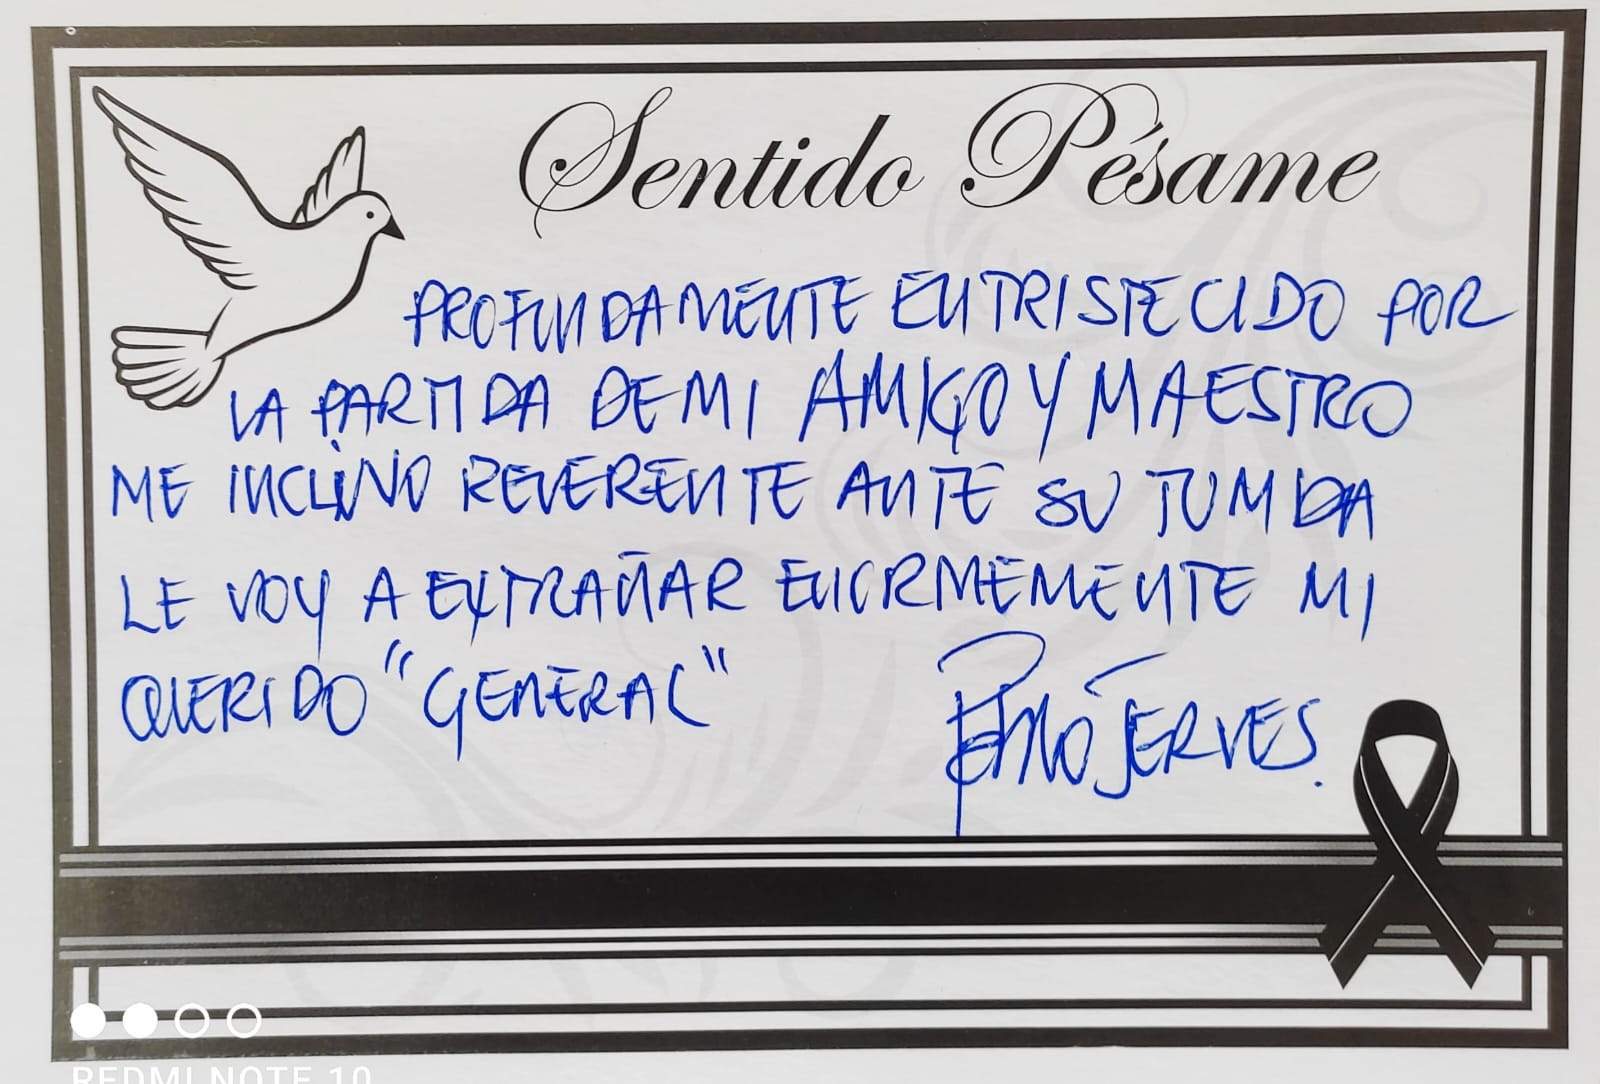 Sentido Pésame
PROFUNDAMENTE ENTRISTECIDO POR
LA PARTIDA DE MI AMIGO Y MAESTRO
ME INCLINO REVERENTE ANTE SU TUMBA
LE VOY A EXTRAÑAR ENORMEMENTE MI
QUERIDO "GENERAL"
JERVES.
REDMI NOTE 10